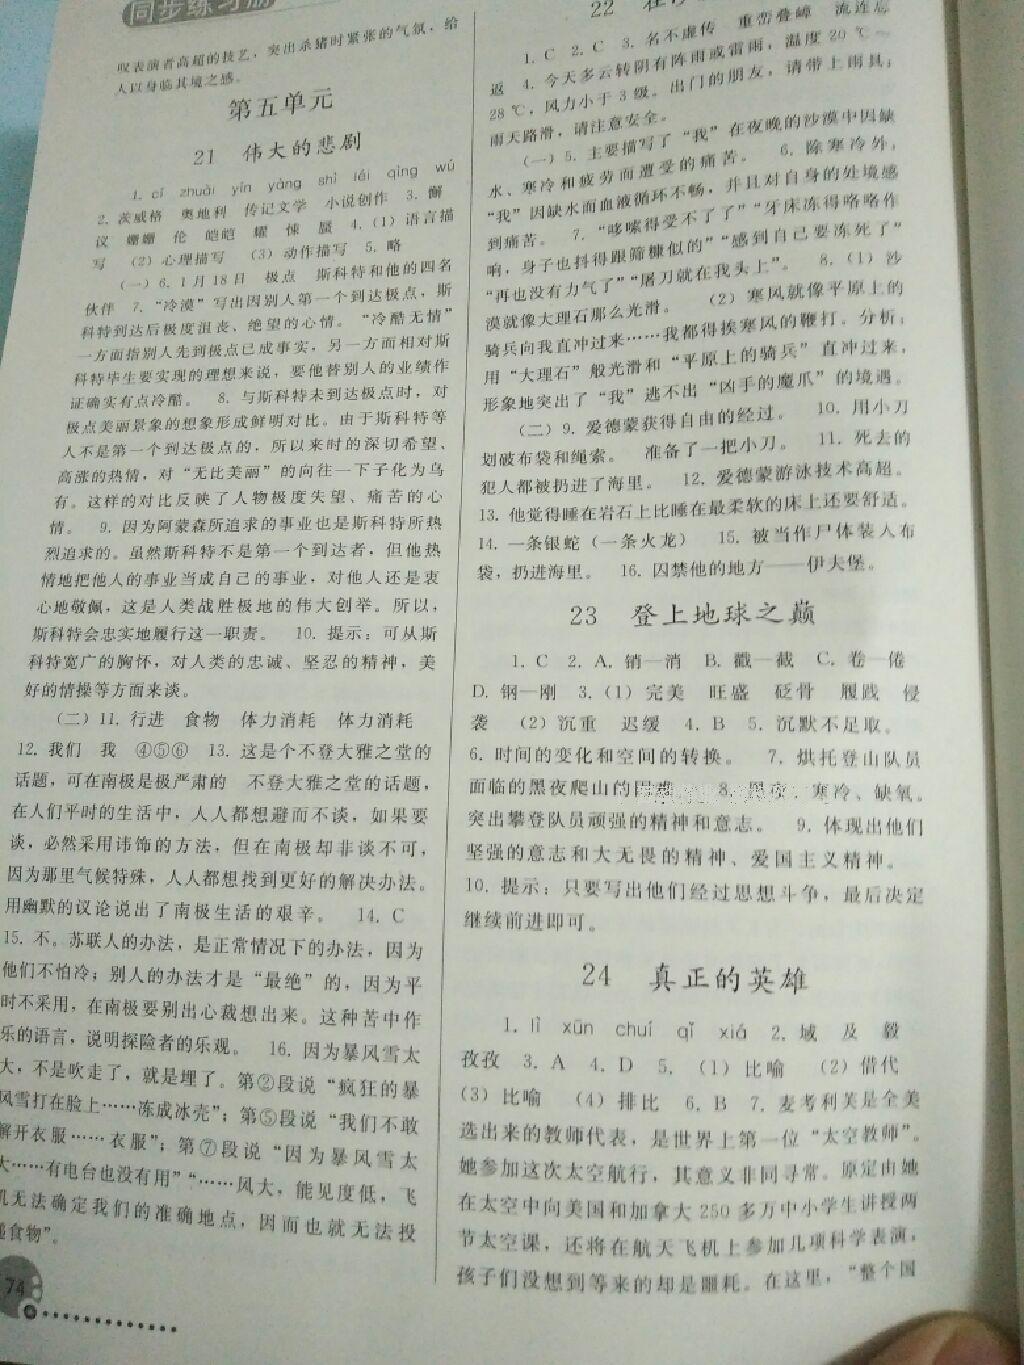 同步练习册
叹表演者高超的技艺，突出杀猪时紧张的气氛，给
人以身临其境之感。
第五单元
21 伟大的悲剧
1. cī zhuài yīn yàng shì lěi qìng wǔ
2. 茨威格 奥地利 传记文学 小说创作 3. 懈
议 姗姗 伦 皑皑 耀 悚 蜃 4. (1) 语言描
写 (2) 心理描写 (3) 动作描写 5. 略
(一) 6. 1月18日 极点 斯科特和他的四名
伙伴 7. “冷漠”写出因别人第一个到达极点，斯
科特到达后极度沮丧、绝望的心情。 “冷酷无情”
一方面指别人先到极点已成事实，另一方面相对斯
科特毕生要实现的理想来说，要他替别人的业绩作
证确实有点冷酷。 8. 与斯科特未到达极点时，对
极点美丽景象的想象形成鲜明对比。由于斯科特等
人不是第一个到达极点的，所以来时的深切希望、
高涨的热情，对“无比美丽”的向往一下子化为乌
有。这样的对比反映了人物极度失望、痛苦的心
情。 9. 因为阿蒙森所追求的事业也是斯科特所热
烈追求的。虽然斯科特不是第一个到达者，但他热
情地把他人的事业当成自己的事业，对他人还是衷
心地敬佩，这是人类战胜极地的伟大创举。所以，
斯科特会忠实地履行这一职责。 10. 提示：可从斯
科特宽广的胸怀，对人类的忠诚、坚忍的精神，美
好的情操等方面来谈。
(二) 11. 行进 食物 体力消耗 体力消耗
12. 我们 我 ④⑤⑥ 13. 这是个不登大雅之堂的
话题，可在南极是极严肃的 不登大雅之堂的话题，
在人们平时的生活中，人人都想避而不谈，如果要
谈，必然采用讳饰的方法，但在南极却非谈不可，
因为那里气候特殊，人人都想找到更好的解决办法。
用幽默的议论说出了南极生活的艰辛。 14. C
15. 不。苏联人的办法，是正常情况下的办法，因为
他们不怕冷；别人的办法才是“最绝”的，因为平
时不采用，在南极要别出心裁想出来。这种苦中作
乐的语言，说明探险者的乐观。 16. 因为暴风雪太
大，不是吹走了，就是埋了。第②段说“疯狂的暴
风雪打在脸上……冻成冰壳”；第⑤段说“我们不敢
解开衣服……衣服”；第⑦段说“因为暴风雪太
大……有电台也没有用”“……风大，能见度低，飞
机无法确定我们的准确地点，因而也就无法投
递食物”。
74
22
1. C 2. C 3. 名不虚传 重峦叠嶂 流连忘
返 4. 今天多云转阴有阵雨或雷雨，温度20℃～
28℃，风力小于3级。出门的朋友，请带上雨具；
雨天路滑，请注意安全。
(一) 5. 主要描写了“我”在夜晚的沙漠中因缺
水、寒冷和疲劳而遭受的痛苦。 6. 除寒冷外，
“我”因缺水而血液循环不畅，并且对自身的处境感
到痛苦。 7. “哆嗦得受不了了”“牙床冻得咯咯作
响，身子也抖得跟筛糠似的”“感到自己要冻死了”
“再也没有力气了”“屠刀就在我头上”。 8. (1) 沙
漠就像大理石那么光滑。 (2) 寒风就像平原上的
骑兵向我直冲过来……我都得挨寒风的鞭打。分析：
用“大理石”般光滑和“平原上的骑兵”直冲过来，
形象地突出了“我”逃不出“凶手的魔爪”的境遇。
(二) 9. 爱德蒙获得自由的经过。 10. 用小刀
划破布袋和绳索。 准备了一把小刀。 11. 死去的
犯人都被扔进了海里。 12. 爱德蒙游泳技术高超。
13. 他觉得睡在岩石上比睡在最柔软的床上还要舒适。
14. 一条银蛇（一条火龙） 15. 被当作尸体装入布
袋，扔进海里。 16. 囚禁他的地方——伊夫堡。
23 登上地球之巅
1. C 2. A. 销—消 B. 戳—截 C. 卷—倦
D. 钢—刚 3. (1) 完美 旺盛 砭骨 履践 侵
袭 (2) 沉重 迟缓 4. B 5. 沉默不足取。
6. 时间的变化和空间的转换。 7. 烘托登山队员
面临的黑夜爬山的 8. 寒冷、缺氧。
突出攀登队员顽强的精神和意志。 9. 体现出他们
坚强的意志和大无畏的精神、爱国主义精神。
10. 提示：只要写出他们经过思想斗争，最后决定
继续前进即可。
24 真正的英雄
1. lì xūn chuí qǐ xiá 2. 域 及 毅
孜孜 3. A 4. D 5. (1) 比喻 (2) 借代
(3) 比喻 (4) 排比 6. B 7. 麦考利芙是全美
选出来的教师代表，是世界上第一位“太空教师”。
她参加这次太空航行，其意义非同寻常。原定由她
在太空中向美国和加拿大250多万中小学生讲授两
节太空课，还将在航天飞机上参加几项科学表演，
孩子们没想到等来的却是噩耗。在这里，“整个国